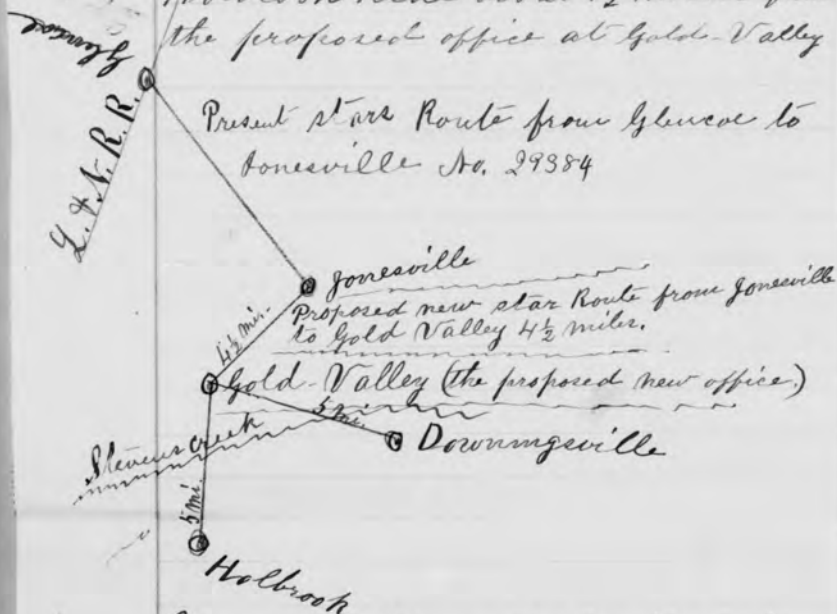 the proposed office at Gold-Valley
Glencoe
L. & N. R. R.
Present stars Route from Glencoe to
Jonesville No. 29384
Jonesville
Proposed new star Route from Jonesville
to Gold Valley 4½ miles.
4½ mi.
Gold-Valley (the proposed new office.)
5 mi.
Stevens creek
Downingsville
5 mi.
Holbrook